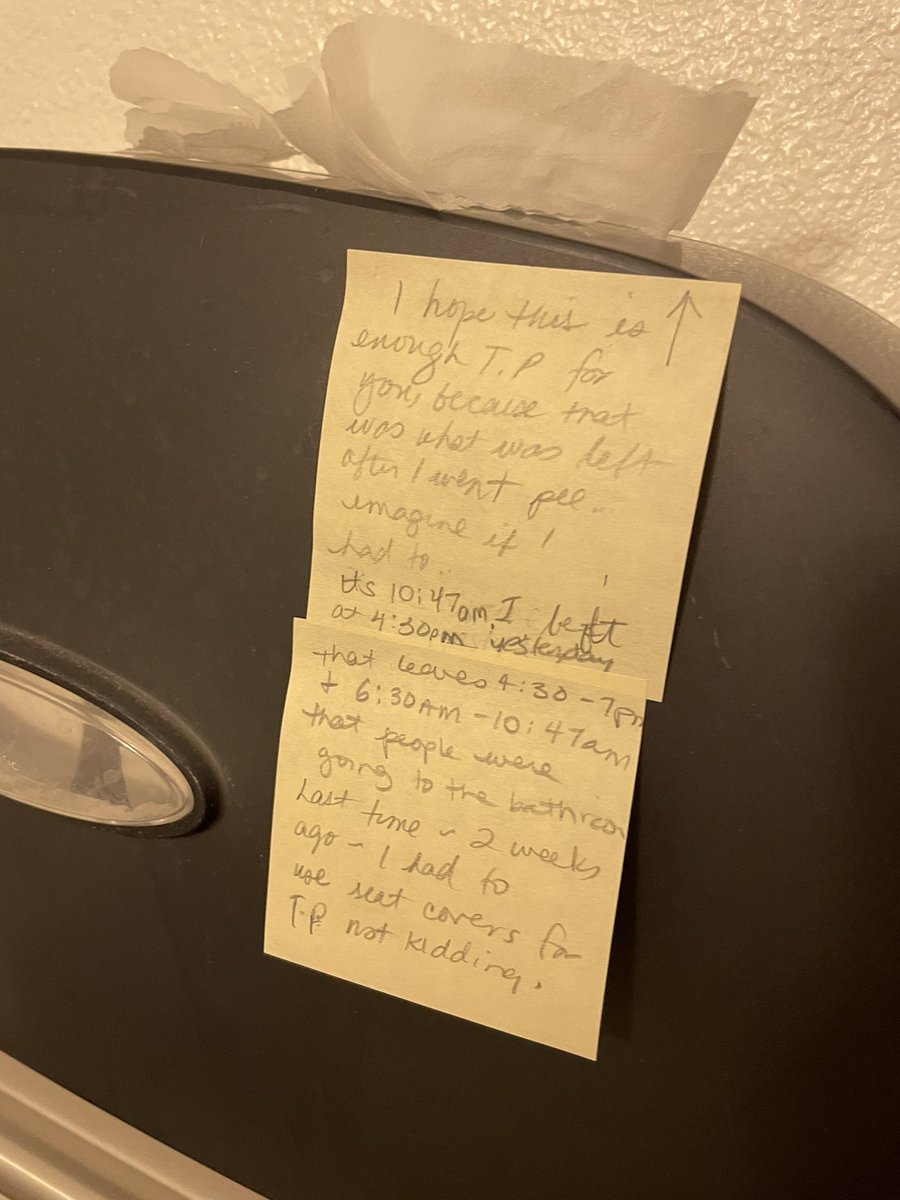 I hope this is ↑
enough T.P for
you, because that
was what was left
after I went pee...
imagine if I
had to..
its 10:47am I left
at 4:30pm yesterday
that leaves 4:30 - 7pm
+ 6:30AM - 10:47am
that people were
going to the bathroom
Last time ~ 2 weeks
ago - I had to
use seat covers for
T.P. not kidding.